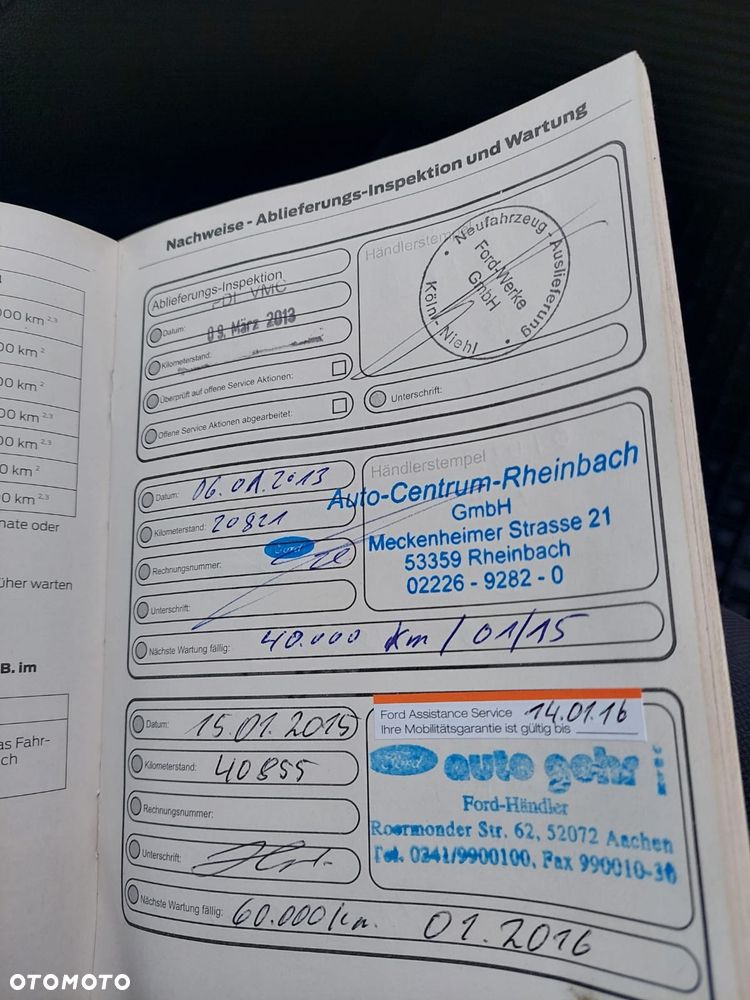 Nachweise - Ablieferungs-Inspektion und Wartung
Ablieferungs-Inspektion
PDI VMC
Datum: 09. März 2013
Kilometerstand:
Überprüft auf offene Service Aktionen:
Offene Service Aktionen abgearbeitet:
Händlerstempel
Neufahrzeug-Auslieferung
Ford-Werke
GmbH
Köln-Niehl
Unterschrift:
Datum: 06.01.2013
Kilometerstand: 20821
Rechnungsnummer:
Ford
Unterschrift:
Nächste Wartung fällig: 40.000 km / 01/15
Händlerstempel
Auto-Centrum-Rheinbach
GmbH
Meckenheimer Strasse 21
53359 Rheinbach
02226 - 9282 - 0
Datum: 15.01.2015
Kilometerstand: 40855
Rechnungsnummer:
Unterschrift:
Nächste Wartung fällig: 60.000 km. 01.2016
Ford Assistance Service 14.01.16
Ihre Mobilitätsgarantie ist gültig bis
Ford auto gehr
Ford-Händler
Roermonder Str. 62, 52072 Aachen
Tel. 0241/9900100, Fax 990010-30
000 km 2,3
00 km 2
00 km 2
00 km 2,3
00 km 2,3
0 km 2
00 km 2,3
nate oder
üher warten
B. im
as Fahr-
ch
OTOMOTO